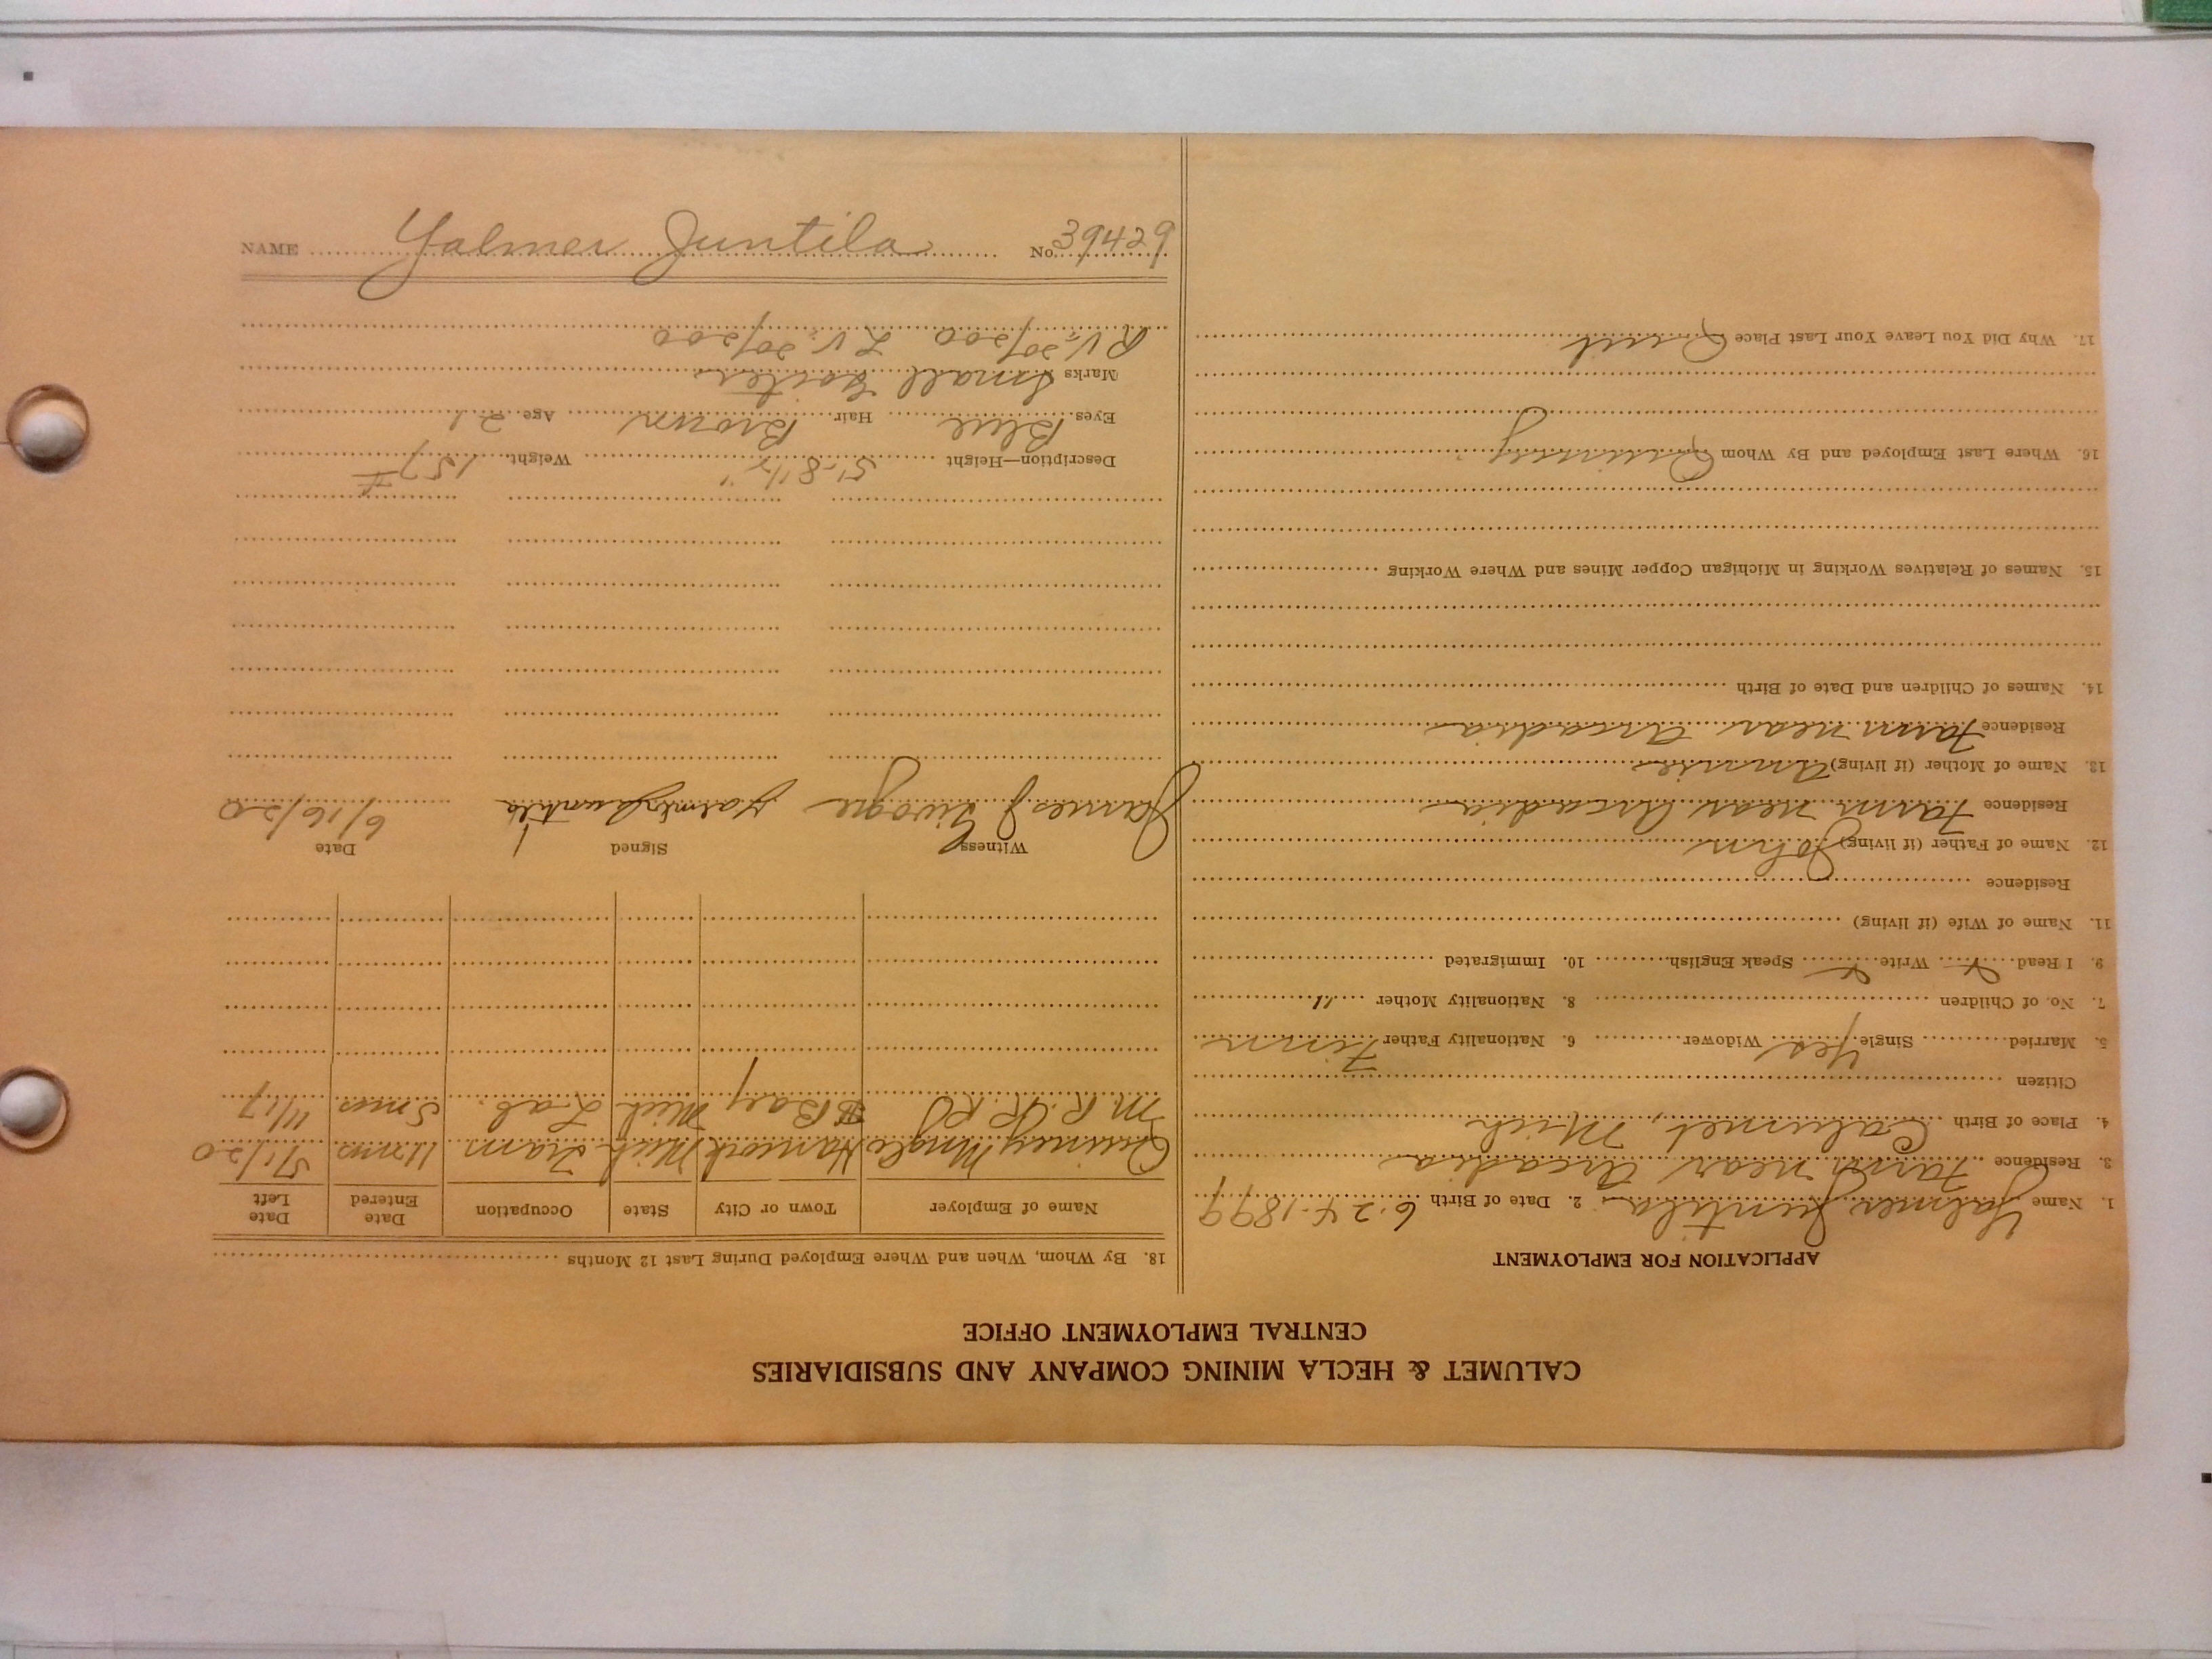 CALUMET & HECLA MINING COMPANY AND SUBSIDIARIES
CENTRAL EMPLOYMENT OFFICE
APPLICATION FOR EMPLOYMENT
1. Name Yalmer Juntila 2. Date of Birth 6-24-1899
3. Residence Farm near Arcadia
4. Place of Birth Calumet, Mich
Citizen
5. Married Single Yes Widower 6. Nationality Father Finn
7. No. of Children 8. Nationality Mother "
9. I Read Write Speak English 10. Immigrated
11. Name of Wife (if living)
Residence
12. Name of Father (if living) John
Residence Farm near Arcadia
13. Name of Mother (if living) Annie
Residence Farm near Arcadia
14. Names of Children and Date of Birth
15. Names of Relatives Working in Michigan Copper Mines and Where Working
16. Where Last Employed and By Whom Quincy
17. Why Did You Leave Your Last Place Quit
18. By Whom, When and Where Employed During Last 12 Months
Name of Employer Town or City State Occupation Date Entered Date Left
Quincy Mng Co Hancock Mich Tram 11 mos 5/1/20
M. R. R. Bay Mich Lab. 5 mos 11/17
Witness Signed Date
James J Yalmer Juntila 6/16/20
Description—Height 5'-8 1/2" Weight 157 #
Eyes Blue Hair Brown Age 21
Marks Small Goiter
R V: 20/200 L V: 20/200
NAME Yalmer Juntila No. 39429